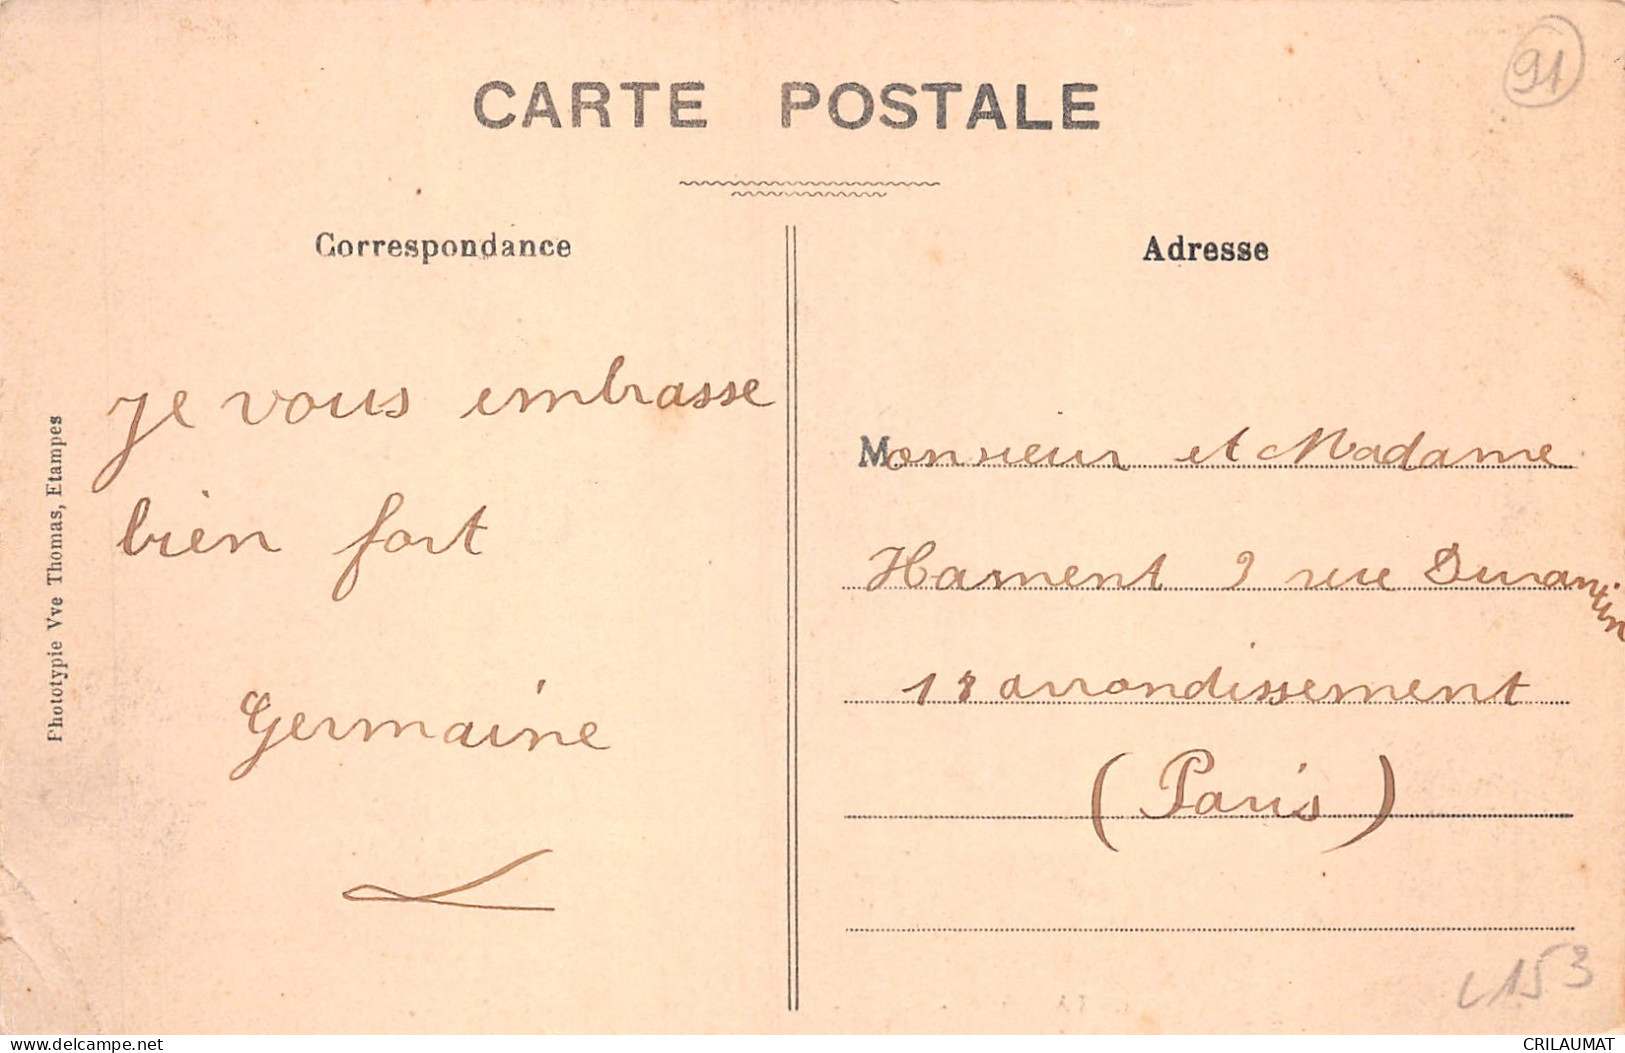 CARTE POSTALE
91
Correspondance
Adresse
Je vous embrasse
bien fort
Germaine
Phototypie Vve Thomas, Etampes
Monsieur et Madame
Hament 9 rue Durantin
18 arrondissement
(Paris)
153
delcampe.net
CRILAUMAT